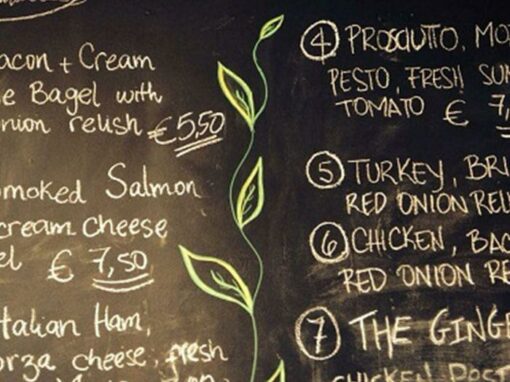 acon + Cream
e Bagel with
nion relish €5,50
moked Salmon
cream cheese
el € 7,50
talian Ham,
orza cheese, fresh
④ PROSCIUTTO, MO
PESTO, FRESH SUN
TOMATO € 7,
⑤ TURKEY, BRI
RED ONION REL
⑥ CHICKEN, BAC
RED ONION RE
⑦ THE GINGE
CHICKEN PEST